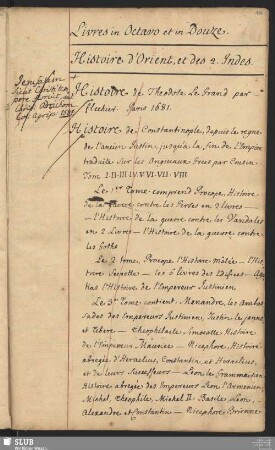 Livres in Octavo et in Douze.
Histoire d'Orient, et des 2. Indes.
Histoire de Theodose Le Grand par
flechier. Paris 1681.
Histoire de Constantinople, depuis le regne
de l'ancien Justin, jusqu'a la fin de l'Empire
traduite sur les Originaux Grecs par Cousin
Tom I. II. III. IV. V. VI. VII. VIII
Le 1er Tome comprend Procope, Histoire
de la guerre contre les Perses en 2 livres —
— l'Histoire de la guerre contre les Vandales
en 2 Livres — l'Histoire de la guerre contre
les Goths
Le 2 tome, Procope, l'Histoire mêlée — l'His
toire Secrette — les 6 livres des Edifices — Aga
thias l'Histoire de l'Empereur Justinien
Le 3e Tome contient, Menandre, les Ambas
sades des Empereurs Justinien, Justin le jeune
et Tibere — Theophilacte Simocatte Histoire
de l'Empereur Maurice — Nicephore, Histoire
abregée d'Heraclius, Constantin, et Heraclius,
et de leurs Successeurs — Leon le Grammairien
Histoire abregée des Empereurs Leon l'Armenien
Michel, Theophile, Michel II. Basile, Leon,
Alexandre et Constantin — Nicephore, Brienne
SLUB